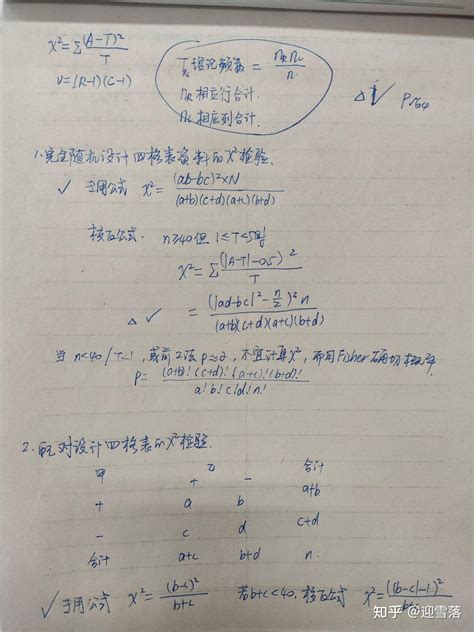 χ²=Σ(A-T)²/T
ν=(R-1)(C-1)
T理论频数 = nR nC / n
nR 相应行合计.
nC 相应列合计.
△ √ P164
1.完全随机设计四格表资料的χ²检验.
√ 专用公式 χ²= (ab-bc)²×N / (a+b)(c+d)(a+c)(b+d)
校正公式. n≥40但1≤T<5时
χ²=Σ(|A-T|-0.5)²/T
△ √ = (|ad-bc|²-n/2)²n / (a+b)(c+d)(a+c)(b+d)
当 n<40/T<1, 或前2法P≈α, 不宜计算χ², 而用Fisher确切概率.
P= (a+b)!(c+d)!(a+c)!(b+d)! / a!b!c!d!n!
2.配对设计四格表的χ²检验.
甲 乙 合计
+ -
+ a b a+b
- c d c+d
合计 a+c b+d n.
√专用公式 χ²= (b-c)²/b+c 若b+c<40, 校正公式 χ²= (|b-c|-1)²/b+c
知乎 @迎雪落